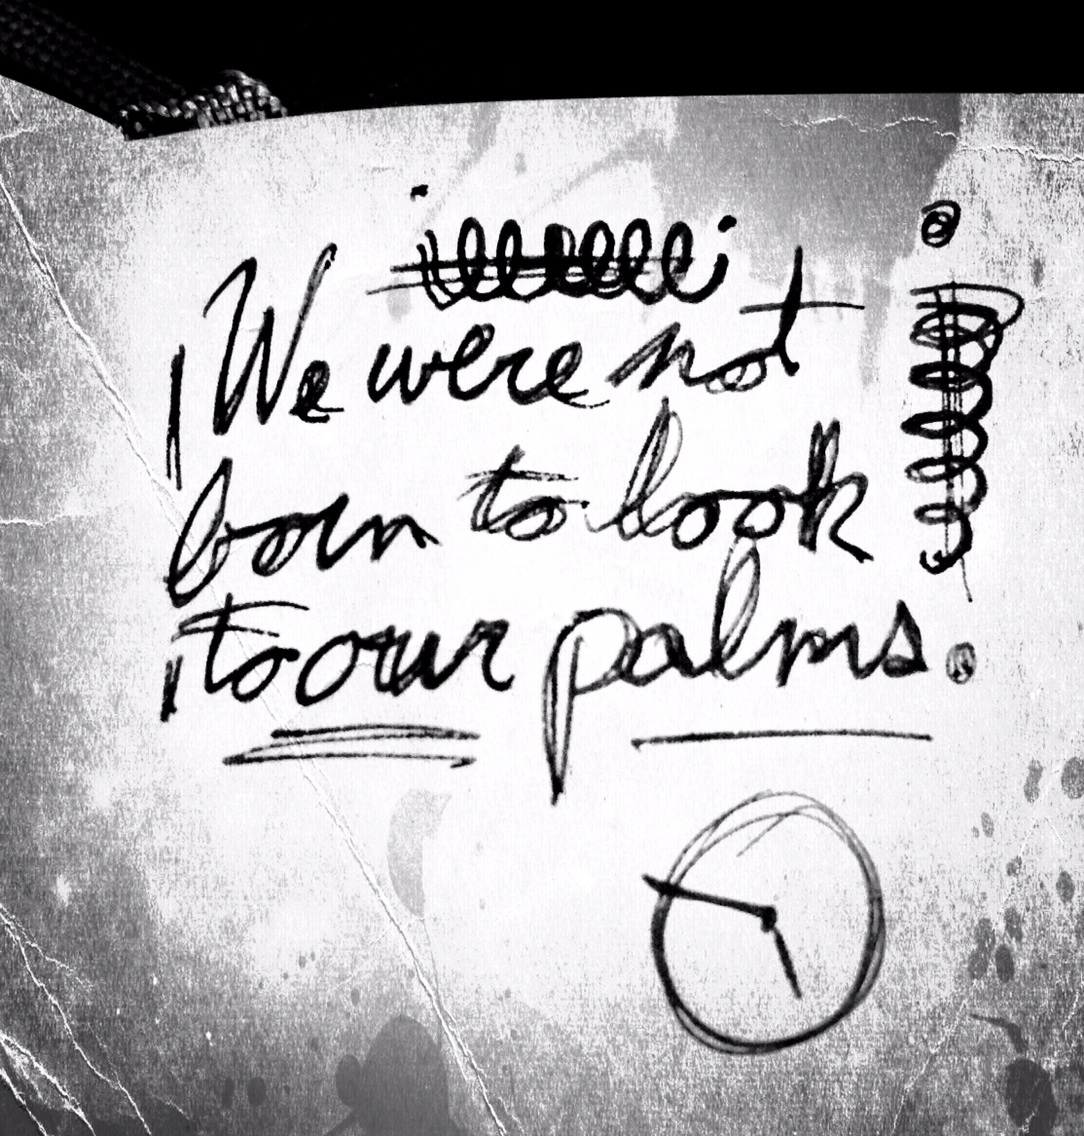 We were not
born to look
to our palms.